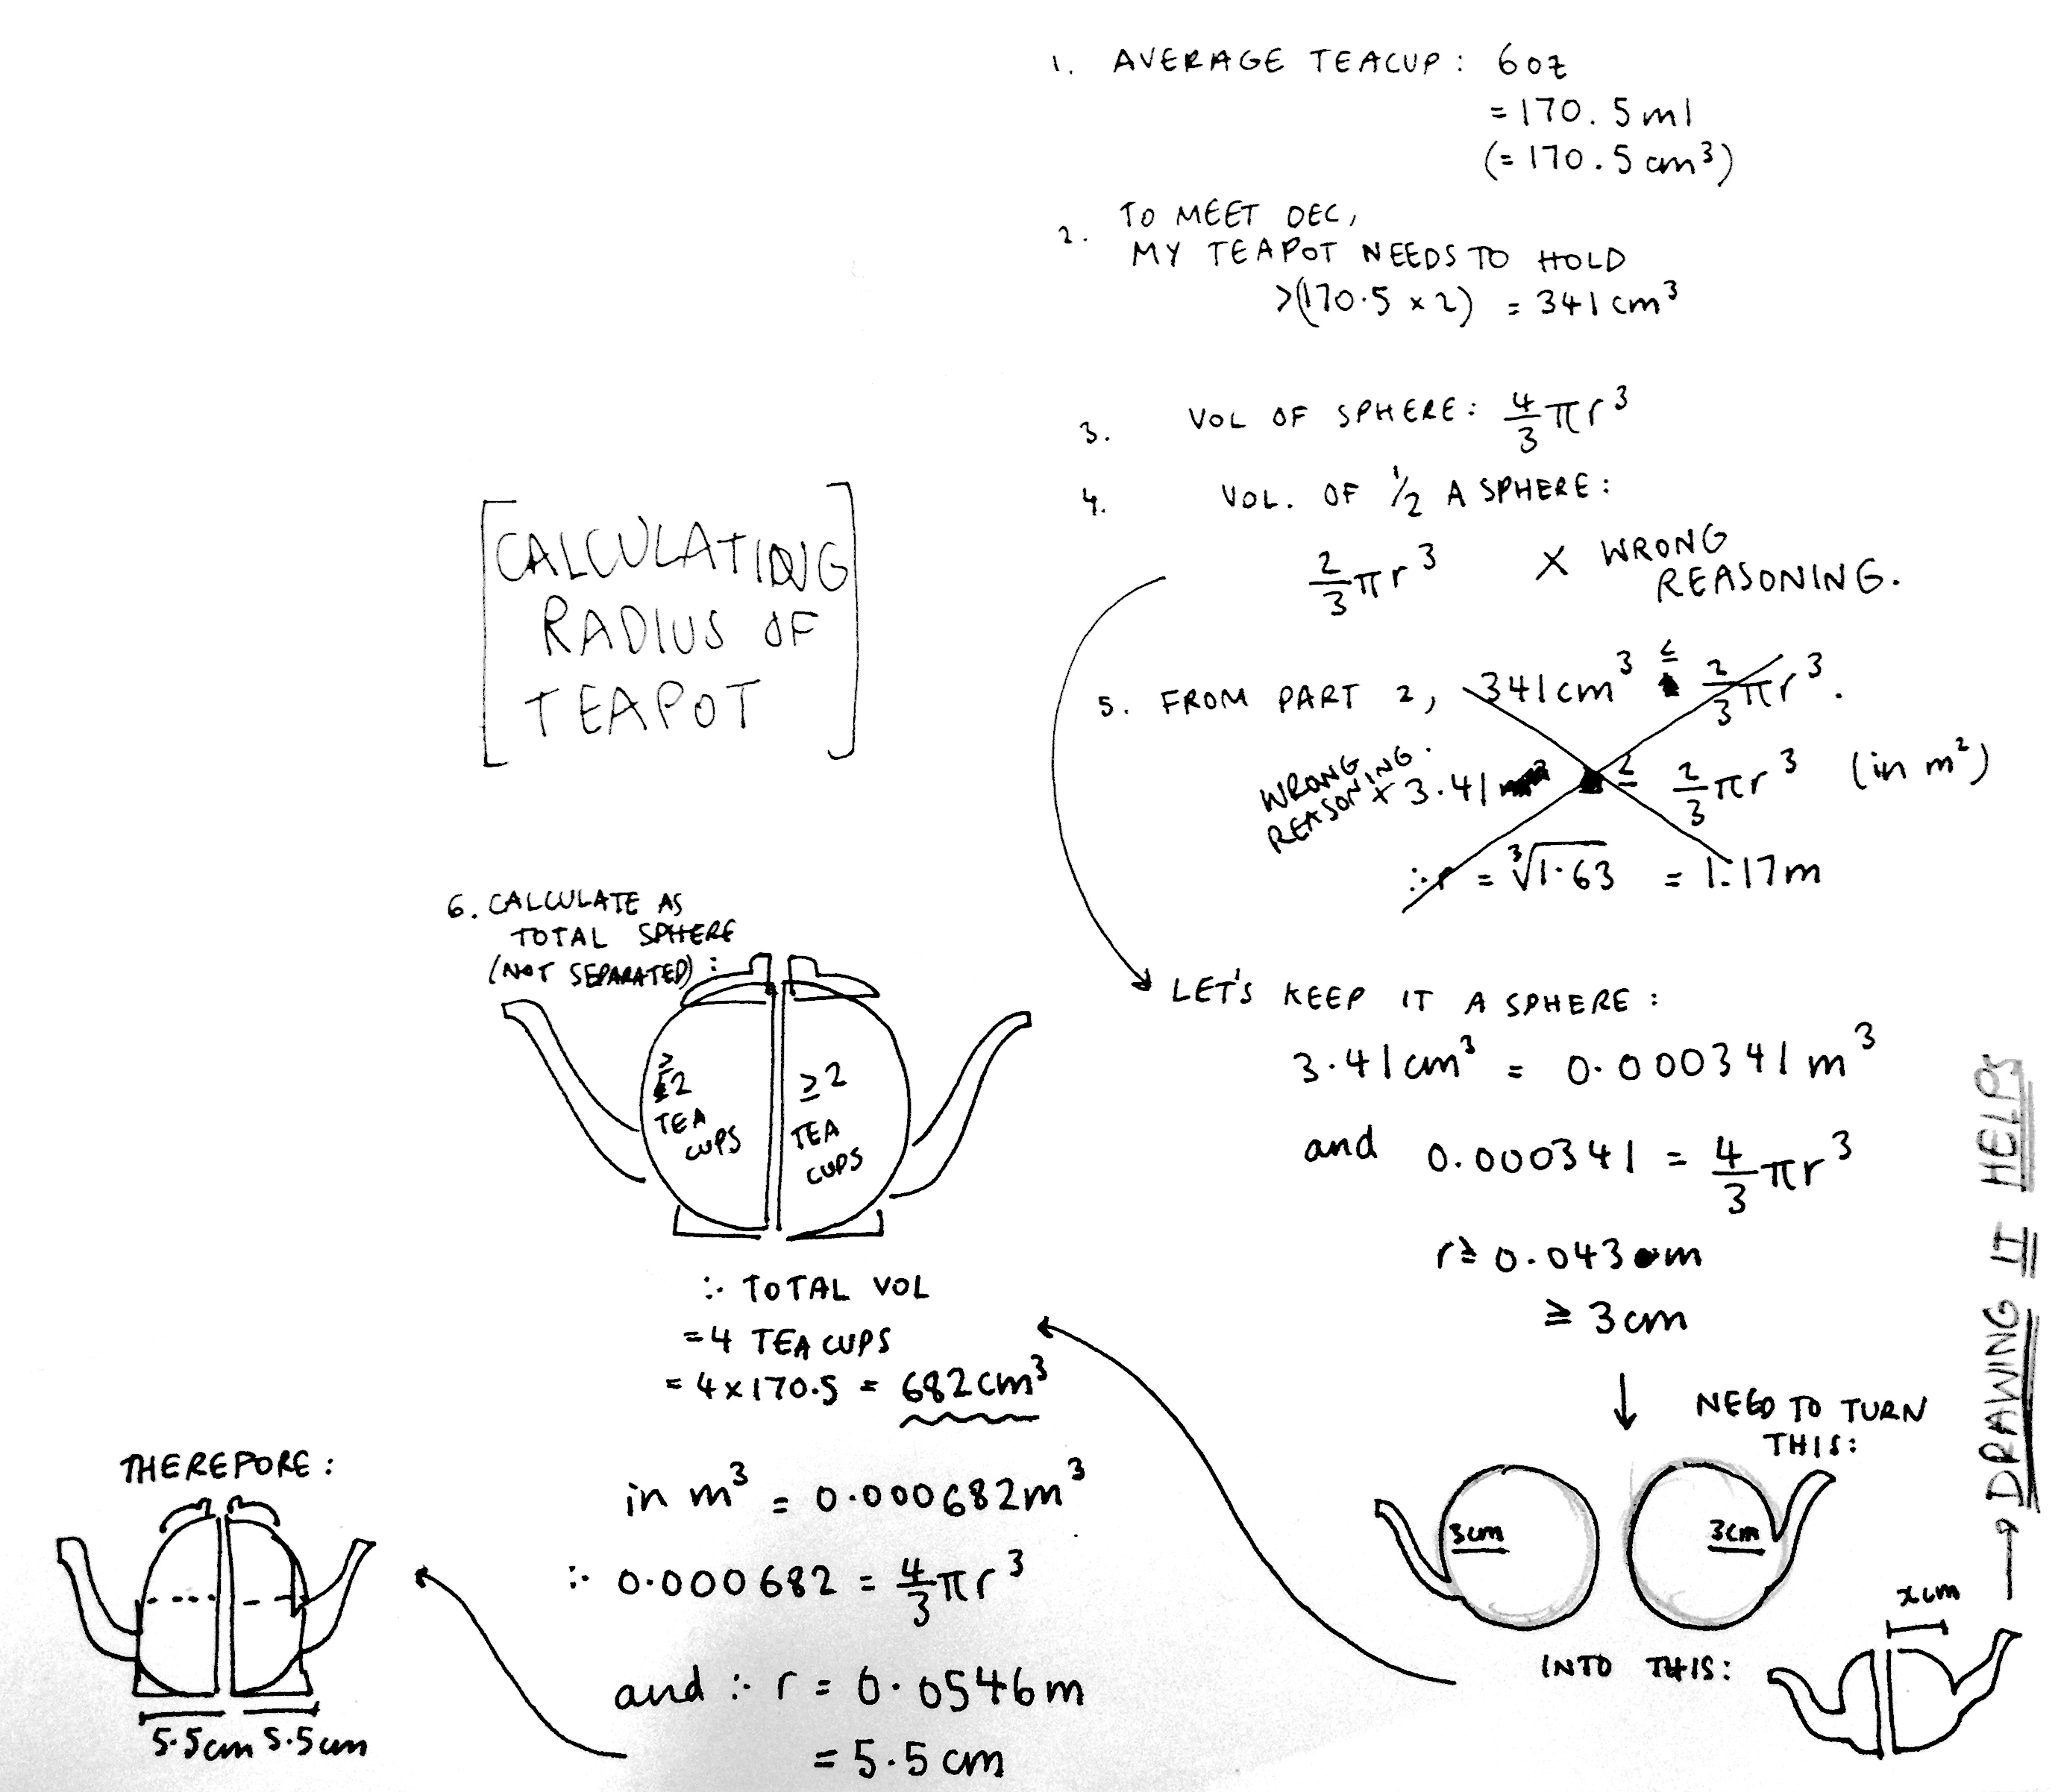 1. AVERAGE TEACUP: 6oz
= 170.5ml
(= 170.5 cm³)
2. TO MEET DEC,
MY TEAPOT NEEDS TO HOLD
>(170.5 x 2) = 341 cm³
3. VOL OF SPHERE: 4/3 πr³
4. VOL. OF 1/2 A SPHERE:
2/3 πr³ X WRONG
REASONING.
5. FROM PART 2, 341cm³ ≤ 2/3 πr³.
WRONG
REASONING.
x 3.41 ≤ 2/3 πr³ (in m²)
∴ r = ³√1.63 = 1.17m
[CALCULATING
RADIUS OF
TEAPOT]
LET'S KEEP IT A SPHERE:
3.41cm³ = 0.000341 m³
and 0.000341 = 4/3 πr³
r ≥ 0.043 m
≥ 3cm
NEED TO TURN
THIS:
3cm 3cm
INTO THIS:
xcm
→ DRAWING IT HELPS
6. CALCULATE AS
TOTAL SPHERE
(NOT SEPARATED):
≥2
TEA
CUPS
≥2
TEA
CUPS
∴ TOTAL VOL
= 4 TEA CUPS
= 4 x 170.5 = 682cm³
in m³ = 0.000682m³
∴ 0.000682 = 4/3 πr³
and ∴ r = 0.0546m
= 5.5 cm
THEREFORE:
5.5cm 5.5cm